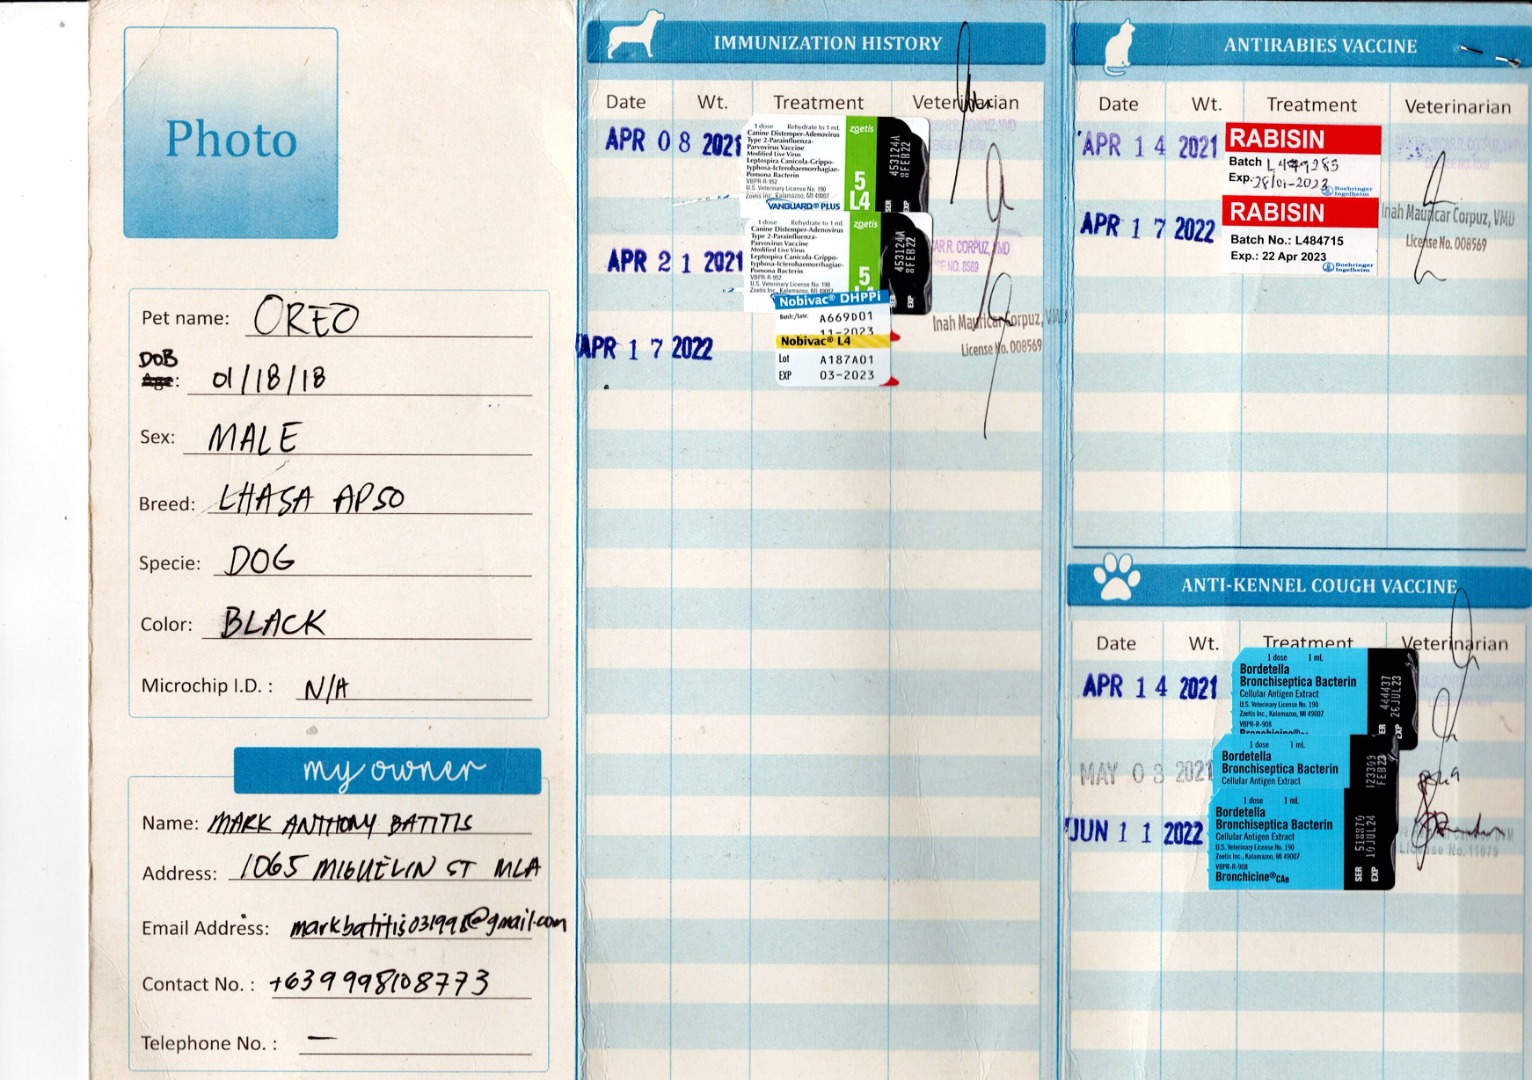 Photo
Pet name: OREO
DOB
Age: 01/18/18
Sex: MALE
Breed: LHASA APSO
Specie: DOG
Color: BLACK
Microchip I.D. : N/A
my owner
Name: MARK ANTHONY BATITIS
Address: 1065 MIGUELIN ST MLA
Email Address: markbatitis031998@gmail.com
Contact No. : +639998108773
Telephone No. : —
IMMUNIZATION HISTORY
Date Wt. Treatment Veterinarian
APR 08 2021
1 dose Rehydrate to 1 mL
Canine Distemper-Adenovirus
Type 2-Parainfluenza-
Parvovirus Vaccine
Modified Live Virus
Leptospira Canicola-Grippo-
typhosa-Icterohaemorrhagiae-
Pomona Bacterin
VBPR-R-952
U.S. Veterinary License No. 190
Zoetis Inc., Kalamazoo, MI 49007
VANGUARD® PLUS
zoetis
5
L4
SER 453124A
EXP 8FEB22
APR 21 2021
1 dose Rehydrate to 1 mL
Canine Distemper-Adenovirus
Type 2-Parainfluenza-
Parvovirus Vaccine
Modified Live Virus
Leptospira Canicola-Grippo-
typhosa-Icterohaemorrhagiae-
Pomona Bacterin
VBPR-R-952
U.S. Veterinary License No. 190
Zoetis Inc., Kalamazoo, MI 49007
zoetis
5
453124A
EXP 8FEB22
R. CORPUZ, VMD
NO. 8569
APR 17 2022
Nobivac® DHPPi
A669D01
11-2023
Nobivac® L4
Lot A187A01
EXP 03-2023
Inah Mauricar Corpuz, VMD
License No. 008569
ANTIRABIES VACCINE
Date Wt. Treatment Veterinarian
APR 14 2021
RABISIN
Batch L479283
Exp. 28/01-2023
Boehringer
Ingelheim
APR 17 2022
RABISIN
Batch No.: L484715
Exp.: 22 Apr 2023
Boehringer
Ingelheim
Inah Mauricar Corpuz, VMD
License No. 008569
ANTI-KENNEL COUGH VACCINE
Date Wt. Treatment Veterinarian
APR 14 2021
1 dose 1 mL
Bordetella
Bronchiseptica Bacterin
Cellular Antigen Extract
U.S. Veterinary License No. 190
Zoetis Inc., Kalamazoo, MI 49007
VBPR-R-908
SER 444437
EXP 26JUL23
MAY 03 2021
1 dose 1 mL
Bordetella
Bronchiseptica Bacterin
Cellular Antigen Extract
FEB23
JUN 11 2022
1 dose 1 mL
Bordetella
Bronchiseptica Bacterin
Cellular Antigen Extract
U.S. Veterinary License No. 190
Zoetis Inc., Kalamazoo, MI 49007
VBPR-R-908
Bronchicine® CAe
SER 518870
EXP 10JUL24
License No. 11079